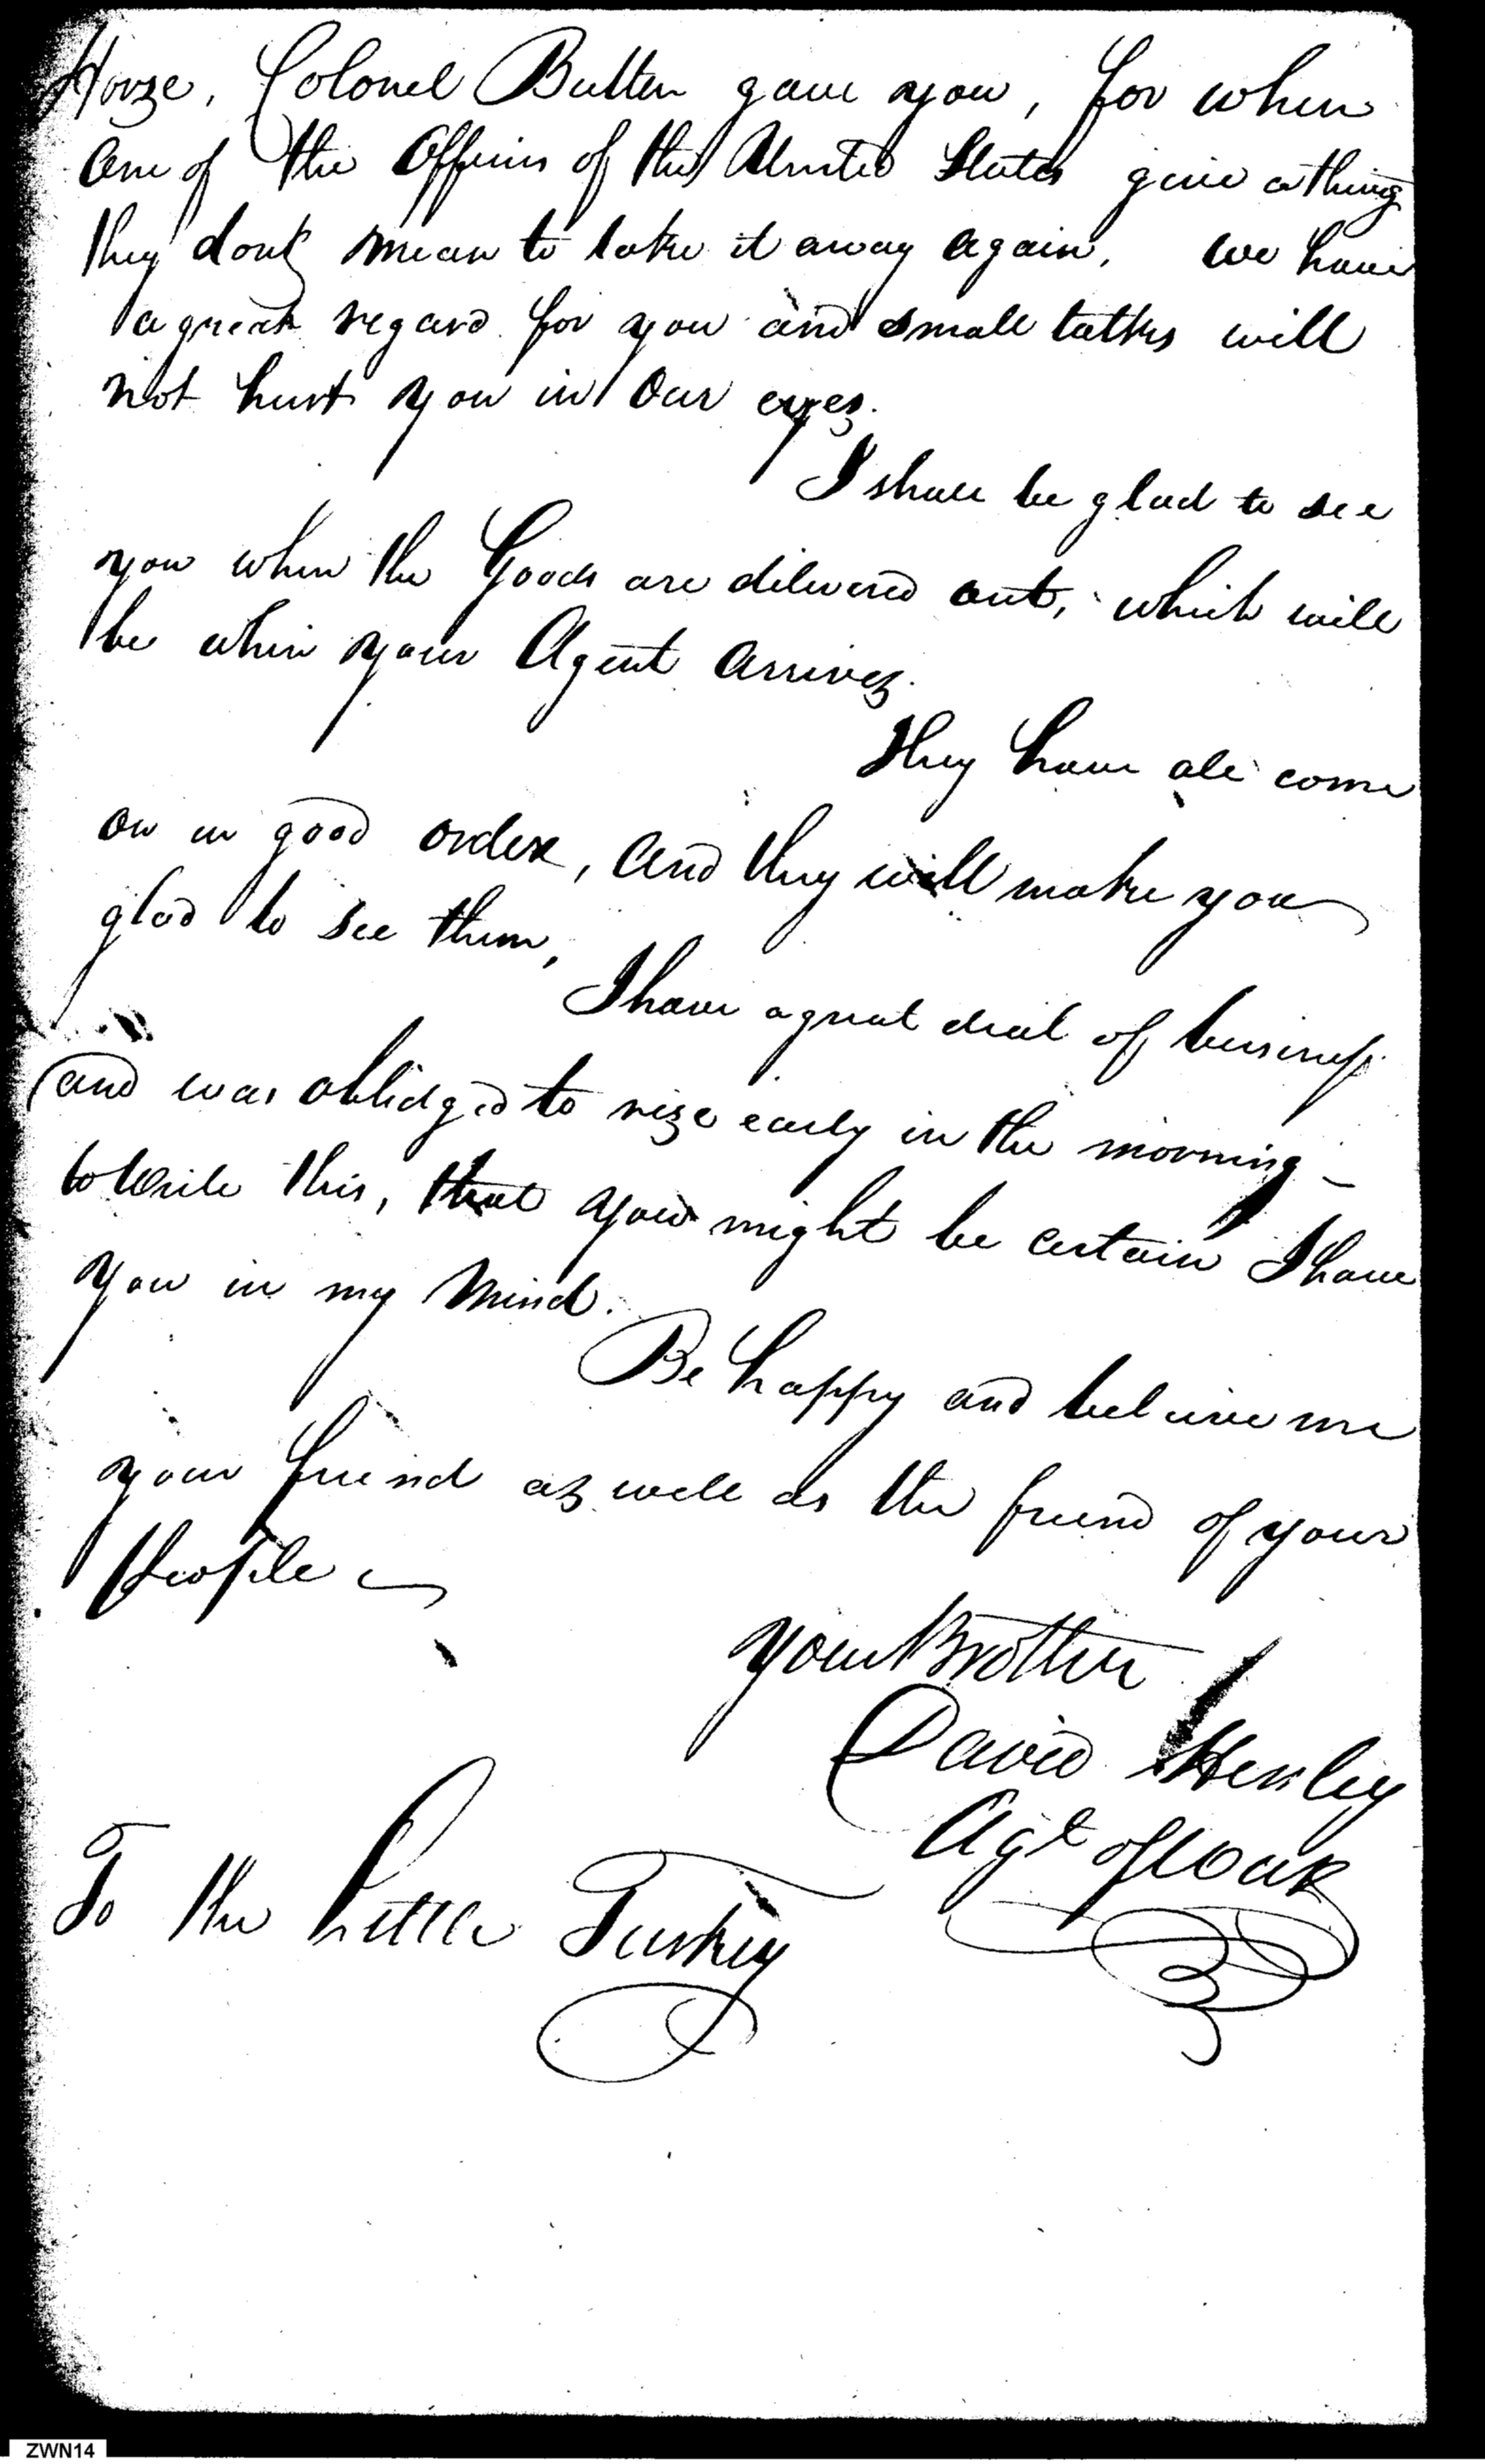 Horze, Colonel Butler gave you, for when
One of the Officers of the United States give a thing
they dont mean to take it away again, we have
a great regard for you and small talks will
not hurt you in our eyes.
I shall be glad to see
you when the Goods are delivered out, which will
be when your Agent arrives.
They have all come
on in good order, and they will make you
glad to see them,
I have a great deal of business
and was oblidged to rize early in the morning
to write this, that you might be certain I have
you in my Mind.
Be happy and believe me
your friend as well as the friend of your
People
your Brother
David Henley
Agt of War
To the Little Turkey
ZWN14